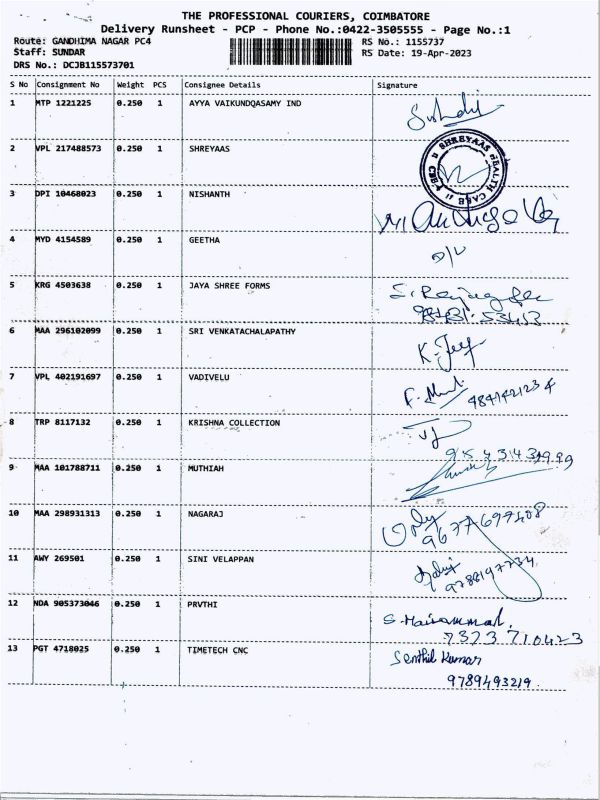 THE PROFESSIONAL COURIERS, COIMBATORE
Delivery Runsheet - PCP - Phone No.:0422-3505555 - Page No.:1
Route: GANDHIMA NAGAR PC4 RS No.: 1155737
Staff: SUNDAR RS Date: 19-Apr-2023
DRS No.: DCJB115573701
S No Consignment No Weight PCS Consignee Details Signature
1 MTP 1221225 0.250 1 AYYA VAIKUNDQASAMY IND
2 VPL 217488573 0.250 1 SHREYAAS
SHREYAAS HEALTH CARE
3 DPI 10468023 0.250 1 NISHANTH
4 MYD 4154589 0.250 1 GEETHA
5 KRG 4503638 0.250 1 JAYA SHREE FORMS
6 MAA 296102099 0.250 1 SRI VENKATACHALAPATHY
7 VPL 402191697 0.250 1 VADIVELU
8 TRP 8117132 0.250 1 KRISHNA COLLECTION
9 MAA 101788711 0.250 1 MUTHIAH
10 MAA 298931313 0.250 1 NAGARAJ
11 AWY 269501 0.250 1 SINI VELAPPAN
9788197734
12 NDA 905373046 0.250 1 PRVTHI
7373710423
13 PGT 4718025 0.250 1 TIMETECH CNC Senthil Kumar
9789493219.